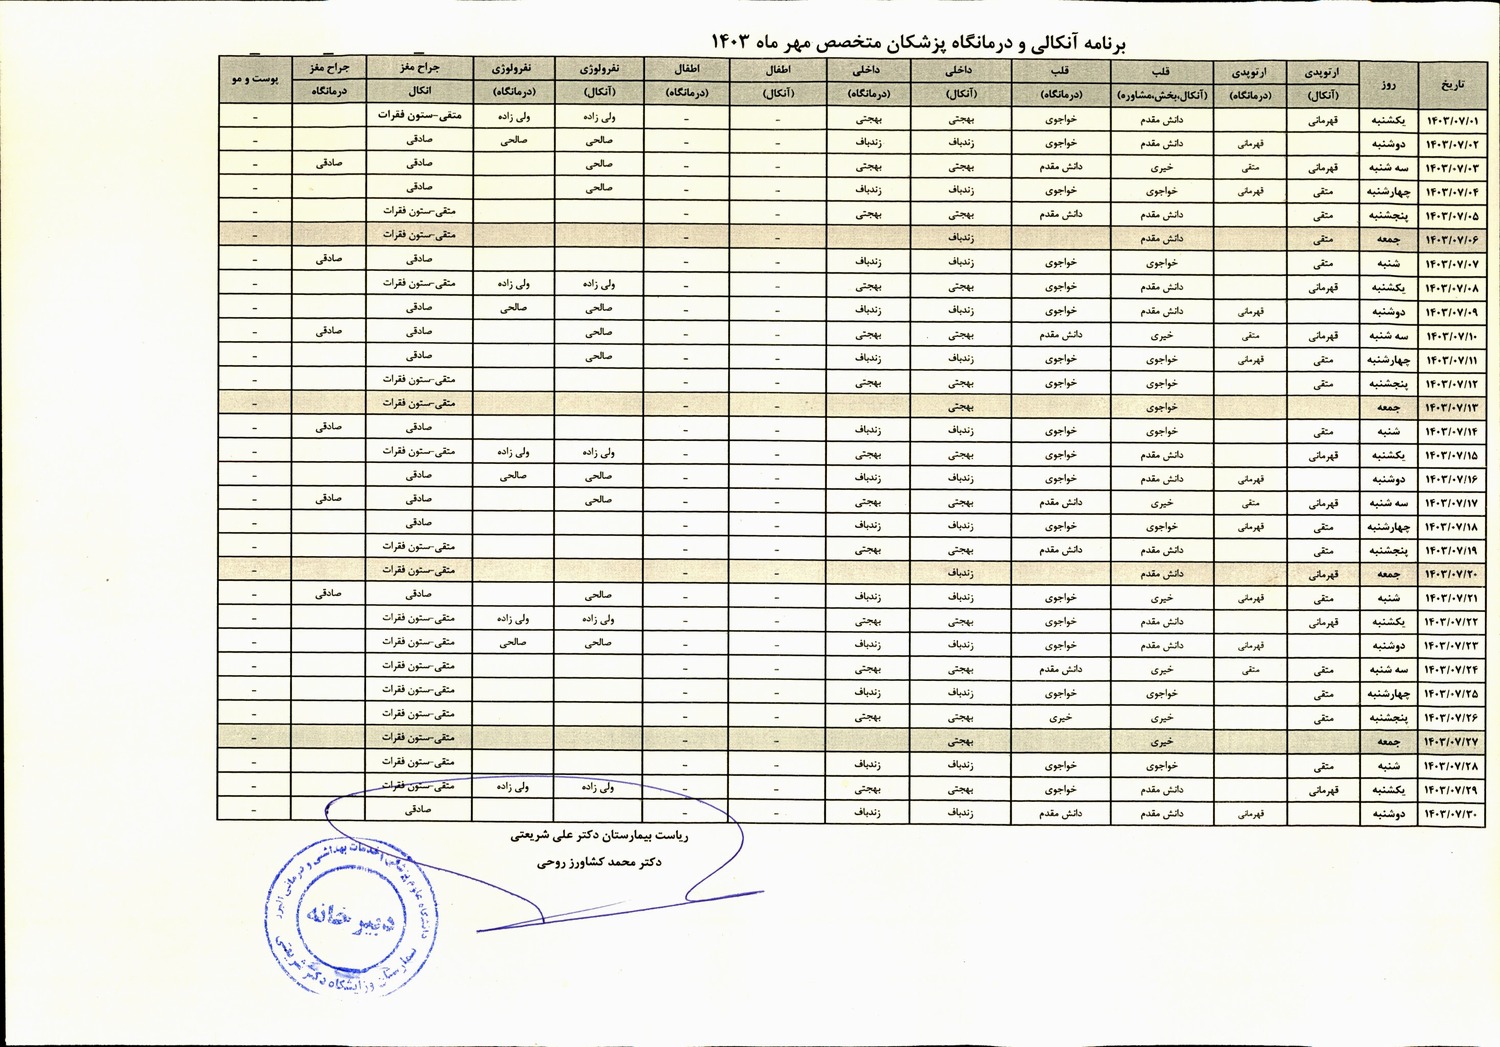 برنامه آنکالی و درمانگاه پزشکان متخصص مهر ماه ۱۴۰۳
تاریخ روز ارتوپدی (آنکال) ارتوپدی (درمانگاه) قلب (آنکال،بخش،مشاوره) قلب (درمانگاه) داخلی (آنکال) داخلی (درمانگاه) اطفال (آنکال) اطفال (درمانگاه) نفرولوژی (آنکال) نفرولوژی (درمانگاه) جراح مغز انکال جراح مغز درمانگاه پوست و مو
۱۴۰۳/۰۷/۰۱ یکشنبه قهرمانی دانش مقدم خواجوی بهجتی بهجتی - - ولی زاده ولی زاده متقی-ستون فقرات -
۱۴۰۳/۰۷/۰۲ دوشنبه قهرمانی دانش مقدم خواجوی زندباف زندباف - - صالحی صالحی صادقی -
۱۴۰۳/۰۷/۰۳ سه شنبه قهرمانی متقی خیری دانش مقدم بهجتی بهجتی - - صالحی صادقی صادقی -
۱۴۰۳/۰۷/۰۴ چهارشنبه متقی قهرمانی خواجوی خواجوی زندباف زندباف - - صالحی صادقی -
۱۴۰۳/۰۷/۰۵ پنجشنبه متقی دانش مقدم دانش مقدم بهجتی بهجتی - - متقی-ستون فقرات -
۱۴۰۳/۰۷/۰۶ جمعه متقی دانش مقدم زندباف - - متقی-ستون فقرات -
۱۴۰۳/۰۷/۰۷ شنبه متقی خواجوی خواجوی زندباف زندباف - - صادقی صادقی -
۱۴۰۳/۰۷/۰۸ یکشنبه قهرمانی دانش مقدم خواجوی بهجتی بهجتی - - ولی زاده ولی زاده متقی-ستون فقرات -
۱۴۰۳/۰۷/۰۹ دوشنبه قهرمانی دانش مقدم خواجوی زندباف زندباف - - صالحی صالحی صادقی -
۱۴۰۳/۰۷/۱۰ سه شنبه قهرمانی متقی خیری دانش مقدم بهجتی بهجتی - - صالحی صادقی صادقی -
۱۴۰۳/۰۷/۱۱ چهارشنبه متقی قهرمانی خواجوی خواجوی زندباف زندباف - - صالحی صادقی -
۱۴۰۳/۰۷/۱۲ پنجشنبه متقی خواجوی خواجوی بهجتی بهجتی - - متقی-ستون فقرات -
۱۴۰۳/۰۷/۱۳ جمعه خواجوی بهجتی - - متقی-ستون فقرات -
۱۴۰۳/۰۷/۱۴ شنبه متقی خواجوی خواجوی زندباف زندباف - - صادقی صادقی -
۱۴۰۳/۰۷/۱۵ یکشنبه قهرمانی دانش مقدم خواجوی بهجتی بهجتی - - ولی زاده ولی زاده متقی-ستون فقرات -
۱۴۰۳/۰۷/۱۶ دوشنبه قهرمانی دانش مقدم خواجوی زندباف زندباف - - صالحی صالحی صادقی -
۱۴۰۳/۰۷/۱۷ سه شنبه قهرمانی متقی خیری دانش مقدم بهجتی بهجتی - - صالحی صادقی صادقی -
۱۴۰۳/۰۷/۱۸ چهارشنبه متقی قهرمانی خواجوی خواجوی زندباف زندباف - - صادقی -
۱۴۰۳/۰۷/۱۹ پنجشنبه متقی دانش مقدم دانش مقدم بهجتی بهجتی - - متقی-ستون فقرات -
۱۴۰۳/۰۷/۲۰ جمعه قهرمانی دانش مقدم زندباف - - متقی-ستون فقرات -
۱۴۰۳/۰۷/۲۱ شنبه متقی قهرمانی خیری خواجوی زندباف زندباف - - صالحی صادقی صادقی -
۱۴۰۳/۰۷/۲۲ یکشنبه قهرمانی دانش مقدم خواجوی بهجتی بهجتی - - ولی زاده ولی زاده متقی-ستون فقرات -
۱۴۰۳/۰۷/۲۳ دوشنبه قهرمانی دانش مقدم خواجوی زندباف زندباف - - صالحی صالحی متقی-ستون فقرات -
۱۴۰۳/۰۷/۲۴ سه شنبه متقی متقی خیری دانش مقدم بهجتی بهجتی - - متقی-ستون فقرات -
۱۴۰۳/۰۷/۲۵ چهارشنبه متقی خواجوی خواجوی زندباف زندباف - - متقی-ستون فقرات -
۱۴۰۳/۰۷/۲۶ پنجشنبه متقی خیری خیری بهجتی بهجتی - - متقی-ستون فقرات -
۱۴۰۳/۰۷/۲۷ جمعه خیری بهجتی - - متقی-ستون فقرات -
۱۴۰۳/۰۷/۲۸ شنبه متقی خواجوی خواجوی زندباف زندباف - - متقی-ستون فقرات -
۱۴۰۳/۰۷/۲۹ یکشنبه قهرمانی دانش مقدم خواجوی بهجتی بهجتی - - ولی زاده ولی زاده متقی-ستون فقرات -
۱۴۰۳/۰۷/۳۰ دوشنبه قهرمانی دانش مقدم دانش مقدم زندباف زندباف - - صادقی -
ریاست بیمارستان دکتر علی شریعتی
دکتر محمد کشاورز روحی
دانشگاه علوم پزشکی و خدمات بهداشتی و درمانی البرز
دبیرخانه
بیمارستان و زایشگاه دکتر شریعتی